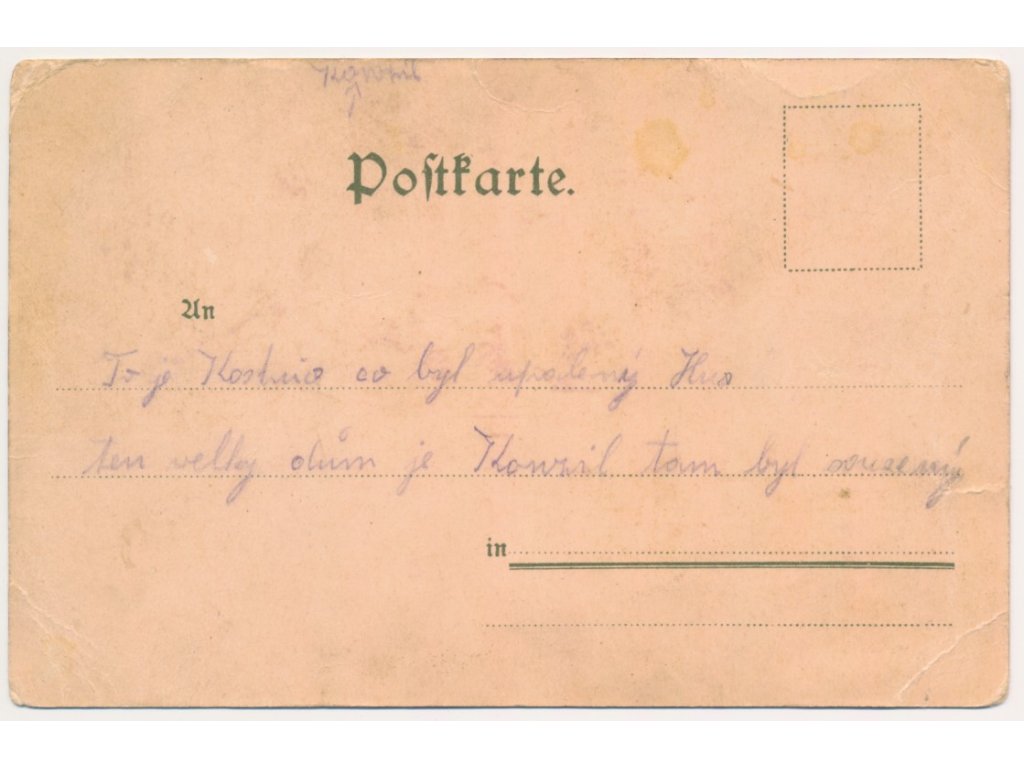 Konzil
Postkarte.
An
To je Kostnic co byl upálený Hus
ten velky dům je Konzil tam byl souzený
in